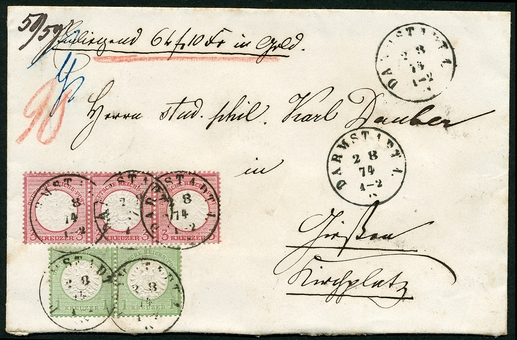 59/59
Einliegend 6 fl 10 Kr in Geld.
98
Herrn stud. phil. Karl Dauber
in
Gießen
Kirchplatz
DARMSTADT 1.
2 8
74
1-2
DARMSTADT 1.
2 8
74
1-2
DARMSTADT 1.
2 8
74
1-2
3 KREUZER 3
KREUZER
KREUZER